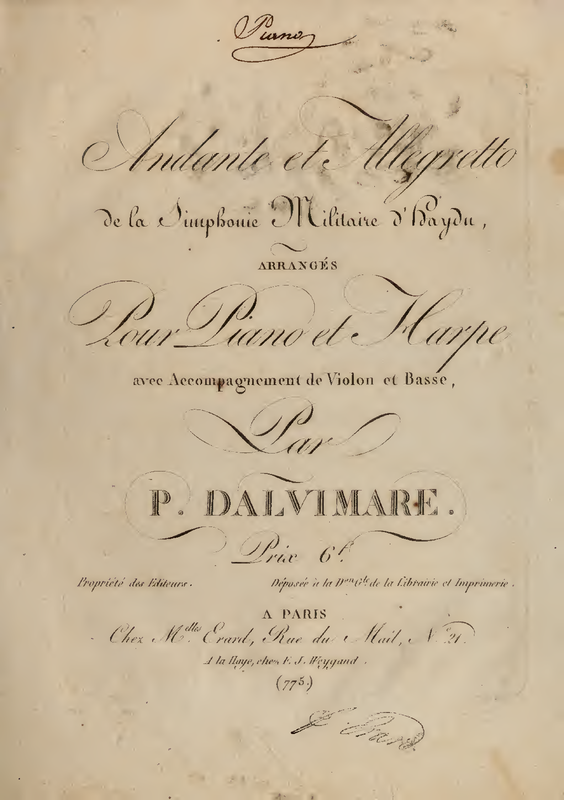 Piano
Andante et Allegretto
de la Simphonie Militaire d'Haydn,
ARRANGÉS
Pour Piano et Harpe
avec Accompagnement de Violon et Basse,
Par
P. DALVIMARE.
Prix 6f.
Propriété des Editeurs. Déposée à la Don Gle de la Librairie et Imprimerie.
A PARIS
Chez Melles Erard, Rue du Mail, No. 21.
A la Haye, chez F. J. Weygand.
(775.)
Erard